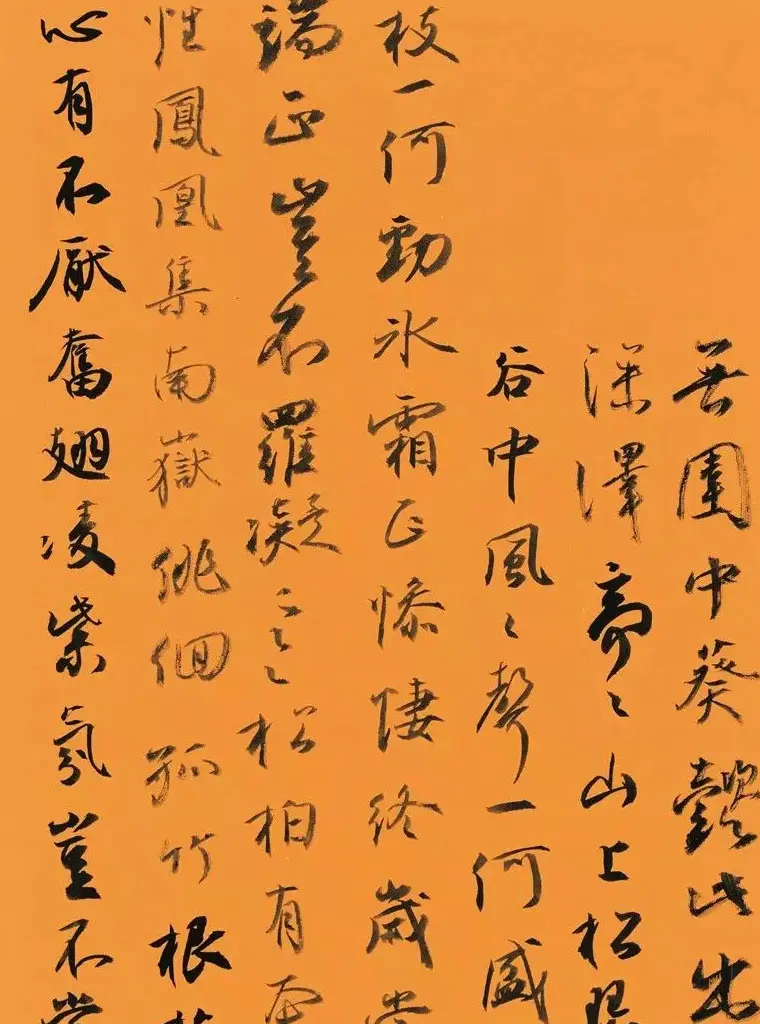 無園中葵懿此出
深澤亭〻山上松
谷中風〻聲一何盛
枝一何勁氷霜正慘悽終歲常
端正豈不羅凝寒松柏有本
性鳳凰集南嶽徘徊孤竹根
心有不厭奮翅凌紫氛豈不常